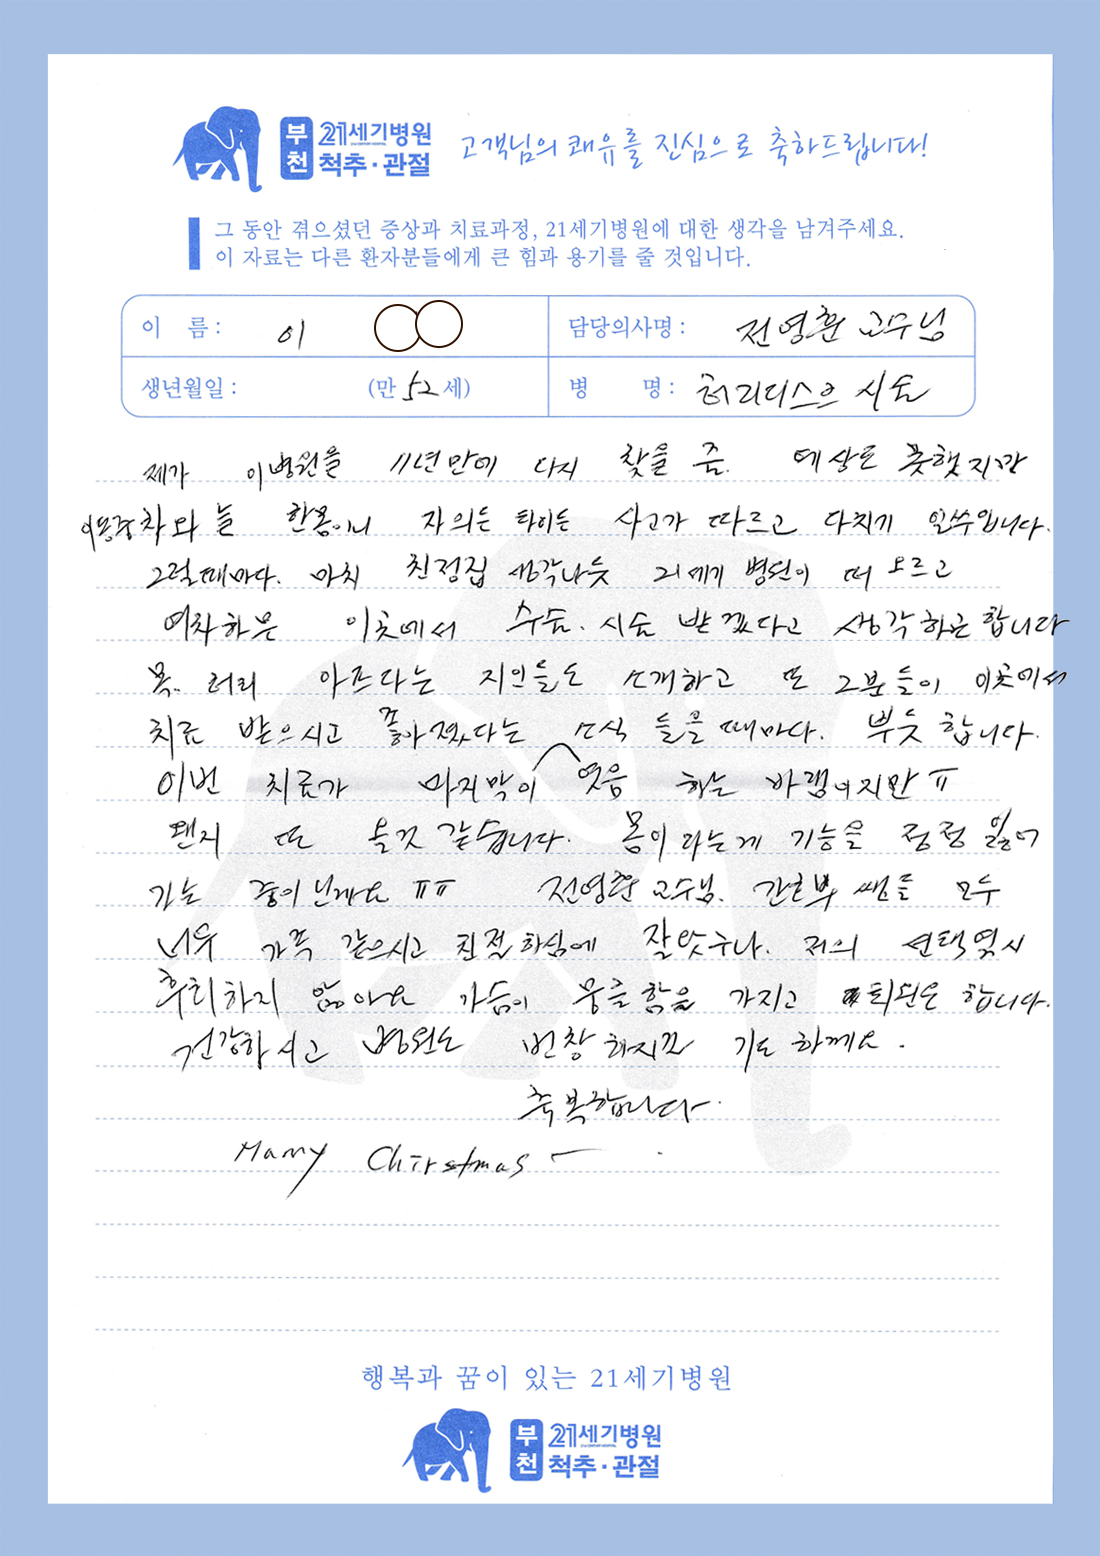 부천 21세기병원 척추·관절 고객님의 쾌유를 진심으로 축하드립니다!
그 동안 겪으셨던 증상과 치료과정, 21세기병원에 대한 생각을 남겨주세요.
이 자료는 다른 환자분들에게 큰 힘과 용기를 줄 것입니다.
이 름 : 이 담당의사명 : 전영훈 교수님
생년월일 : (만 52 세) 병 명 : 허리디스크 시술
제가 이병원을 11년만에 다시 찾을 줄. 예상도 못했지만
차와 늘 한몸이니 자의든 타이든 사고가 따르고 다치기 일쑤입니다.
그럴때마다. 마치 친정집 생각나듯 21세기 병원이 떠오르고
여차하믄 이곳에서 수술. 시술 받겠다고 생각하곤합니다
목. 허리 아프다는 지인들도 소개하고 또 그분들이 이곳에서
치료 받으시고 좋아졌다는 소식 들를때마다. 뿌듯합니다.
이번 치료가 마지막이 엿음 하는 바램이지만 ㅠ
왠지 또 올것 같습니다. 몸이라는게 기능을 점점 잃어
가는 중이닌깨요 ㅠㅠ 전영훈 교수님. 간호부 쌤들 모두
너무 가족 같으시고 친절하심에 잘왔구나. 저의 선택역시
후회하지 않아요 가슴이 뭉클함을 가지고 퇴원은 합니다.
건강하시고 병원도 번창하시길 기도 하께요.
축복합니다.
Marry Chirstmas
행복과 꿈이 있는 21세기병원
부천 21세기병원 척추·관절